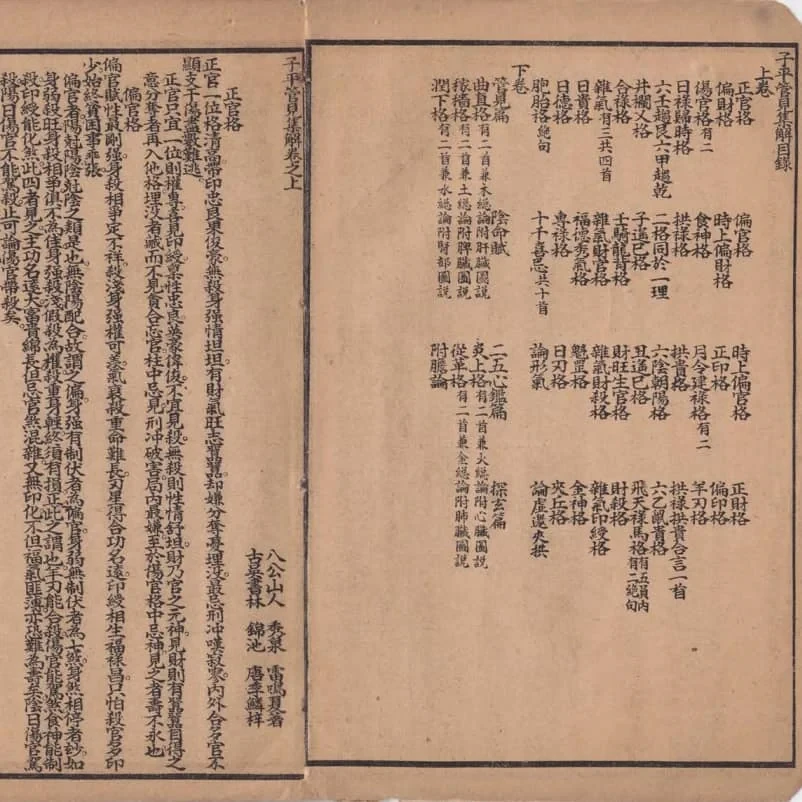 子平管見集解目錄
上卷
正官格 偏官格 時上偏官格 正財格
偏財格 時上偏財格 正印格 偏印格
傷官格有二 食神格 月令建祿格有二 羊刃格
日祿歸時格 拱祿格 拱貴格 拱祿拱貴合言一首
六壬趨艮六甲趨乾 二格同於一理 六陰朝陽格 六乙鼠貴格
井欄叉格 子遙巳格 丑遙巳格 飛天祿馬格有五員內有二絕句
合祿格 壬騎龍背格 財旺生官格 財殺格
雜氣有三共四首 雜氣財官格 雜氣財殺格 雜氣印綬格
日貴格 福德秀氣格 魁罡格 金神格
日德格 專祿格 日刃格 夾丘格
胞胎格絕句 十干喜忌共十首 論形氣 論虛邀夾拱
下卷
管見篇 陰命賦 二五心鑑篇 探玄篇
曲直格有二首兼木總論附肝臟圖説 炎上格有二首兼火總論附心臟圖説
稼穡格有二首兼土總論附脾臟圖説 從革格有二首兼金總論附肺臟圖説
潤下格有二首兼水總論附腎部圖説 附膽論
子平管見集解卷之上
八公山人 秀泉 雷鳴夏著
古吳書林 錦池 唐李鱗梓
正官格
正官一位格清高帶印忠良果俊豪。無殺身强情坦坦有財氣旺志囂囂。却嫌分奪憂埋没。最忌刑冲嘆寂寥。内外合多官不
顯支干傷盡數難逃
正官只宜一位則權專喜見印綬稟性忠良英豪偉俊不宜見殺。無殺則性情舒坦財乃官之元神見財則有囂囂自得之
意分奪者再入他格埋没者藏而不見貪合忘官柱中忌見刑冲破害局内最嫌至於傷官格中忌神見之者壽不永也
偏官格
偏官賦性最剛强身殺相爭定不祥。殺淺身强權可羡氣衰殺重命難長。刃星得合功名遠印綬相生福祿昌。只怕殺官多印
少始終貧困事乖張
偏官者陽尅陽陰尅陰之類是也。無陰陽配合故謂之偏身强有制伏者為偏官身弱無制伏者為七煞身煞相停者紗如
身弱殺旺身殺相爭俱不為佳身强殺淺假殺為權殺重身輕終須有損正此之謂也羊刃能合殺傷官能駕煞食神能制
殺印綬能化煞此四者見之主功名遠大富貴綿長但忌官煞混雜又無印化不但福氣匪薄亦恐難為壽矣陰日傷官駕
殺陽日傷官不能駕殺止可論傷官帶殺矣